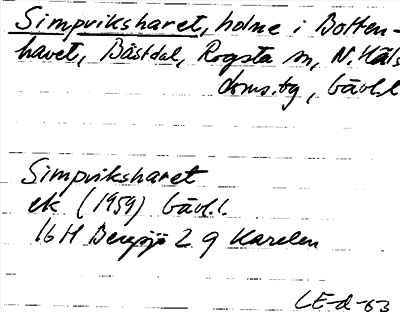 Simpviksharet, holme i Botten-
havet, Båstdal, Rogsta sn, N. Häls
doms.tg, Gävl.l
Simpviksharet
ek (1959) Gävl.l.
16H Bergsjö 2 g Karelen
LE-d-63